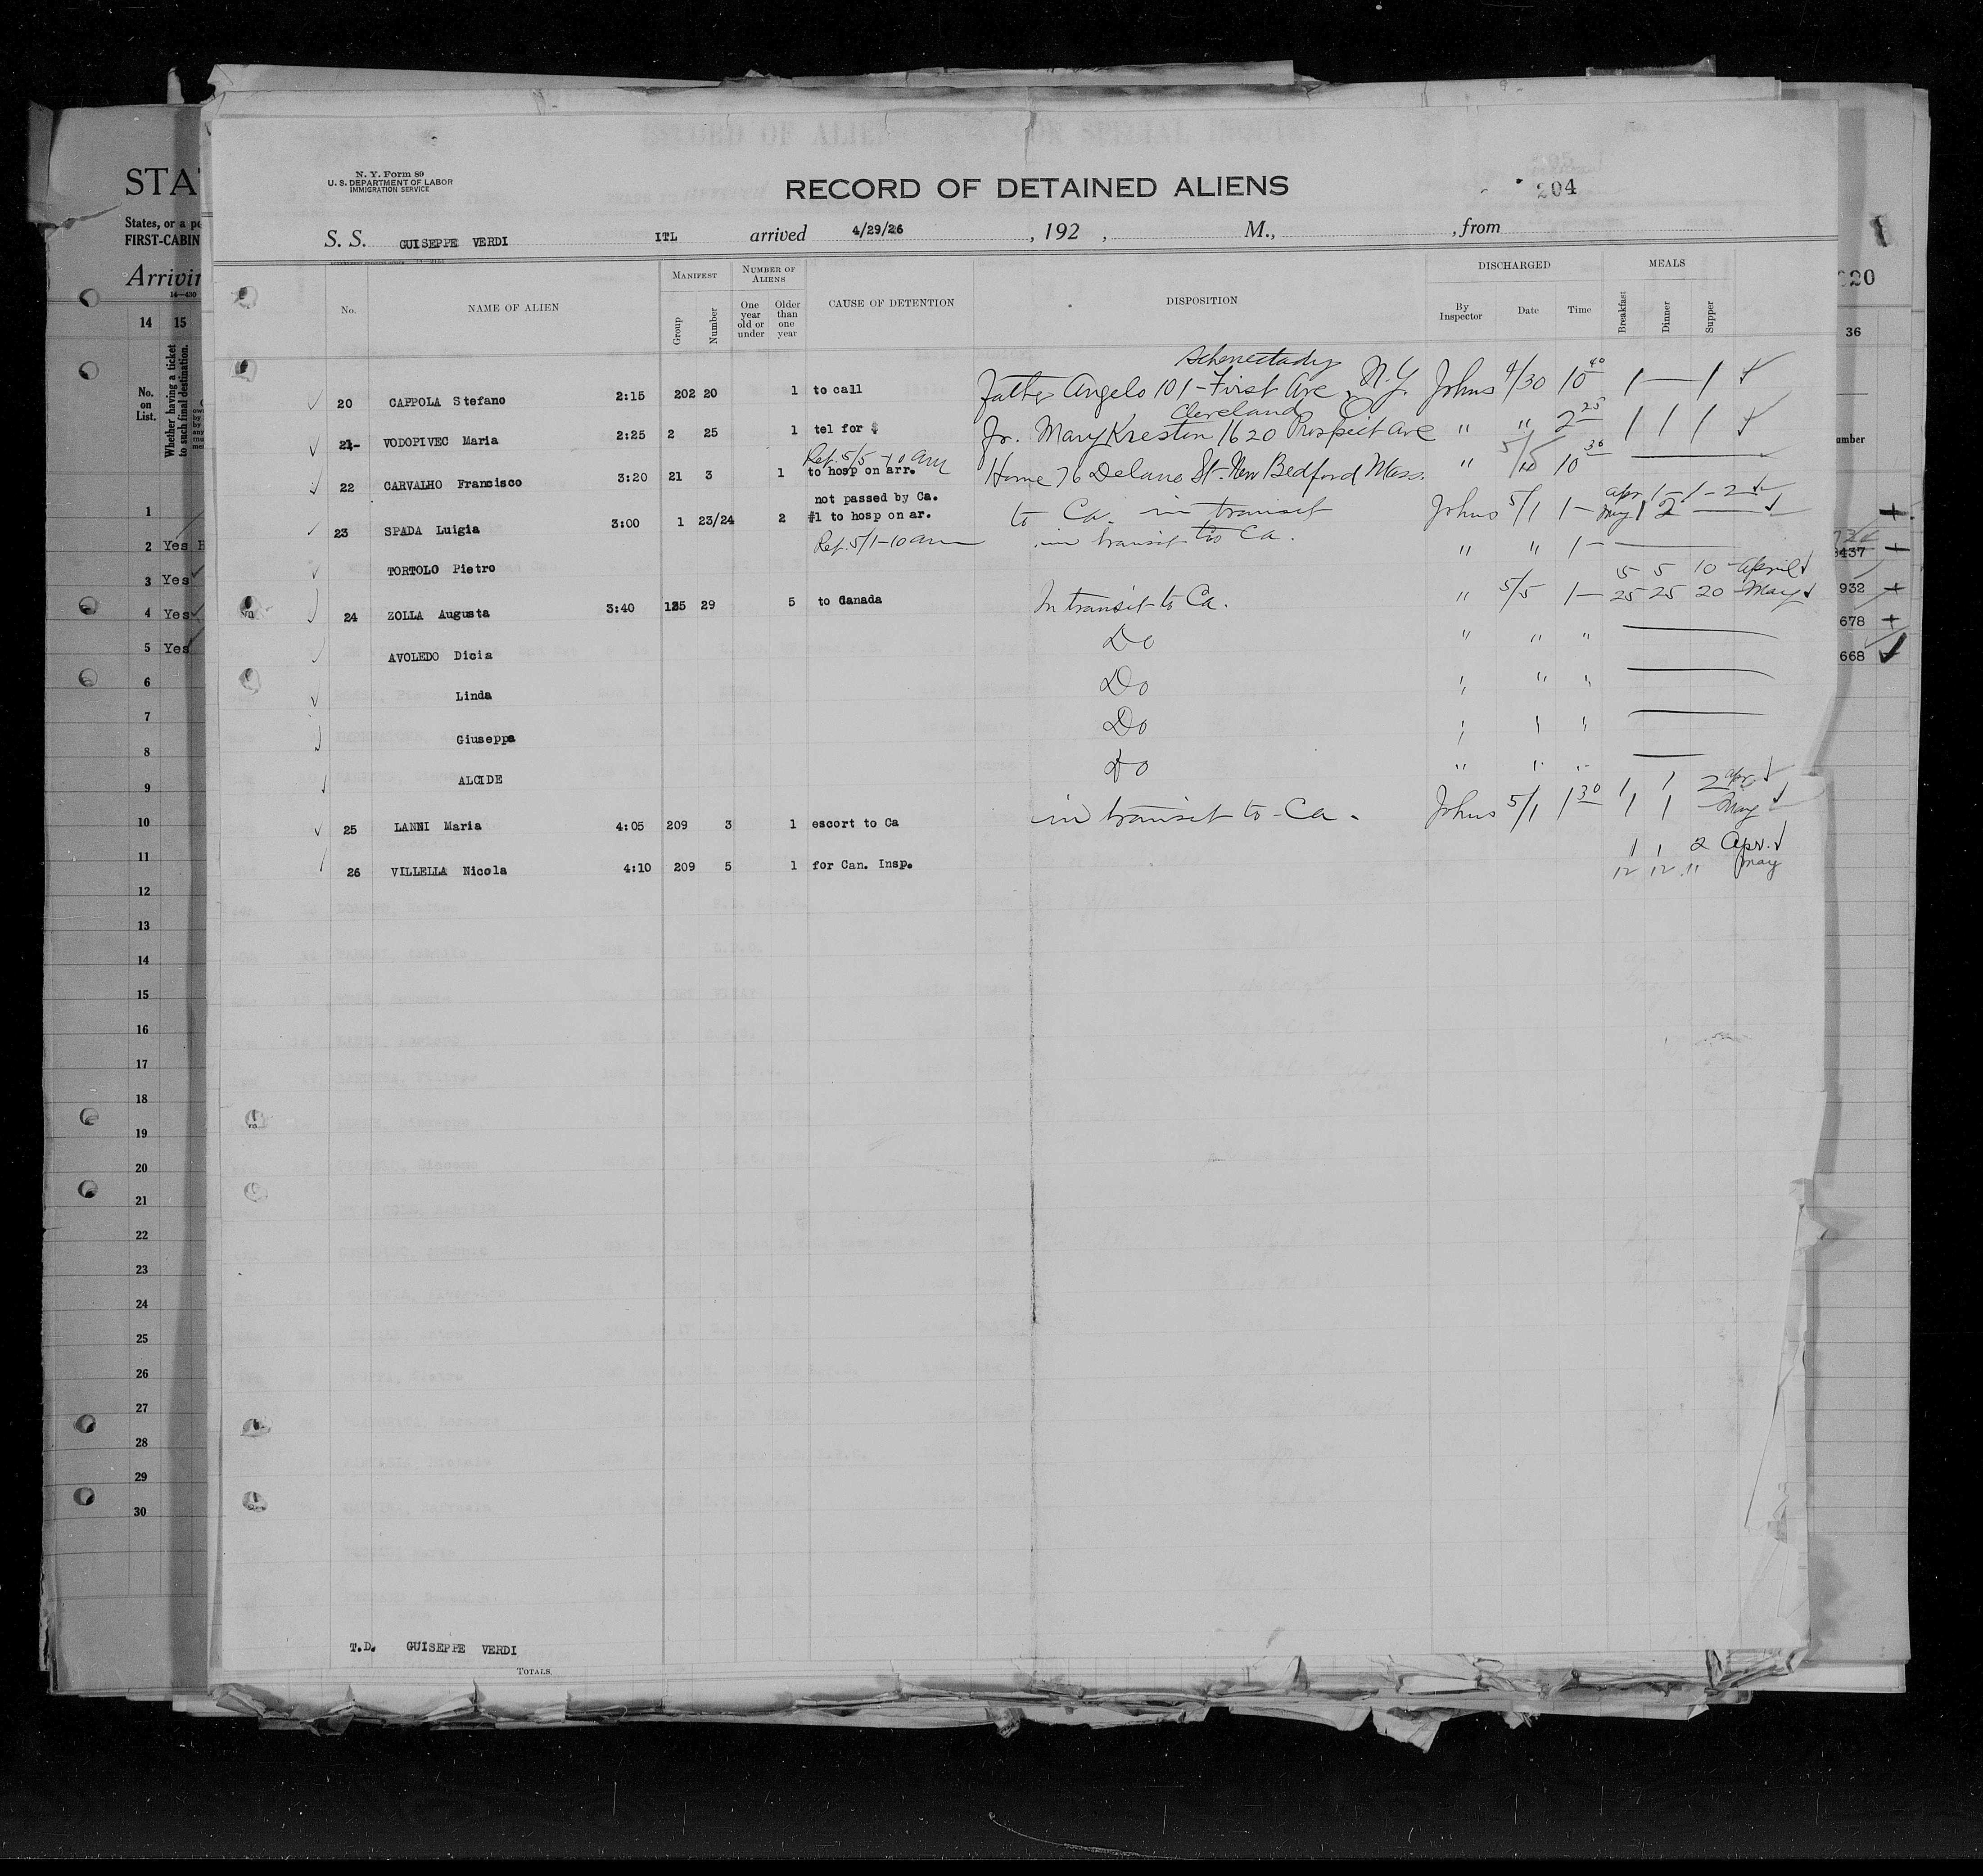 N. Y. Form 89
U. S. DEPARTMENT OF LABOR
IMMIGRATION SERVICE
RECORD OF DETAINED ALIENS
204
S. S. GUISEPPE VERDI ITL arrived 4/29/26 , 192 , M., , from
No. NAME OF ALIEN MANIFEST Group Number NUMBER OF ALIENS One year old or under Older than one year CAUSE OF DETENTION DISPOSITION DISCHARGED By Inspector Date Time MEALS Breakfast Dinner Supper
Schenectady
20 CAPPOLA Stefano 2:15 202 20 1 to call Father Angelo 101-First Ave N.Y. Johns 4/30 10 40 1 — 1
Cleveland O
21 VODOPIVEC Maria 2:25 2 25 1 tel for $ Fr. Mary Kreston 1620 Prospect Ave " " 2 25 1 1 1
Ref. 5/5 10 am
22 CARVALHO Francisco 3:20 21 3 1 to hosp on arr. Home 76 Delano St- New Bedford Mass. " 5/5 10 30
not passed by Ca.
23 SPADA Luigia 3:00 1 23/24 2 #1 to hosp on ar. to Ca. in transit Johns 5/1 1— Apr 1 - 1 - 2
May 1 2
Ref. 5/1-10 am in transit to Ca.
TORTOLO Pietro " " 1—
5 5 10 -April
24 ZOLLA Augusta 3:40 125 29 5 to Canada In transit to Ca. " 5/5 1— 25 25 20 -May
AVOLEDO Dicia Do " " "
Linda Do " " "
Giuseppa Do " " "
ALCIDE Do " " "
1 1 2 Apr.
25 LANNI Maria 4:05 209 3 1 escort to Ca in transit to Ca. Johns 5/1 1 30 1 1 — May
1 1 2 Apr.
26 VILLELLA Nicola 4:10 209 5 1 for Can. Insp. 12 12 11 May
T.D. GUISEPPE VERDI
TOTALS.
STA
States, or a po
FIRST-CABIN
Arrivin
14—430
14 15
No. on List.
Whether having a ticket to such final destination.
1
2 Yes
3 Yes
4 Yes
5 Yes
6
7
8
9
10
11
12
13
14
15
16
17
18
19
20
21
22
23
24
25
26
27
28
29
30
20
36
umber
437
932
678
668